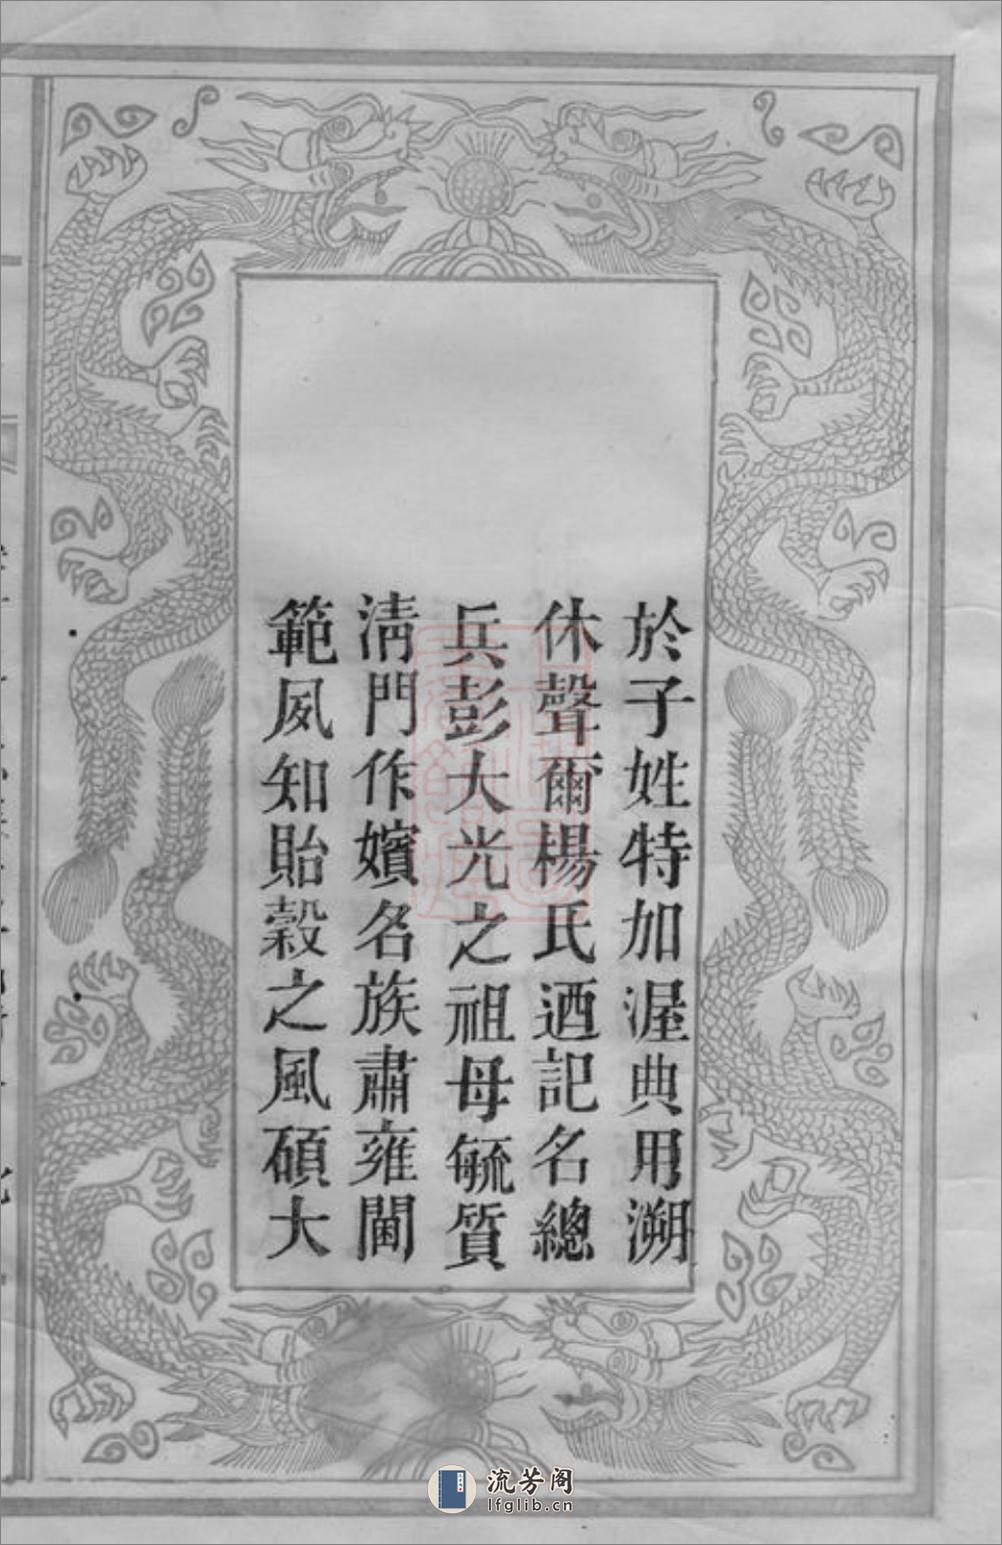 於子姓特加渥典用溯
休聲爾楊氏迺記名總
兵彭大光之祖母毓質
淸門作嬪名族肅雍閫
範夙知貽榖之風碩大
流芳阁
lfglib.cn